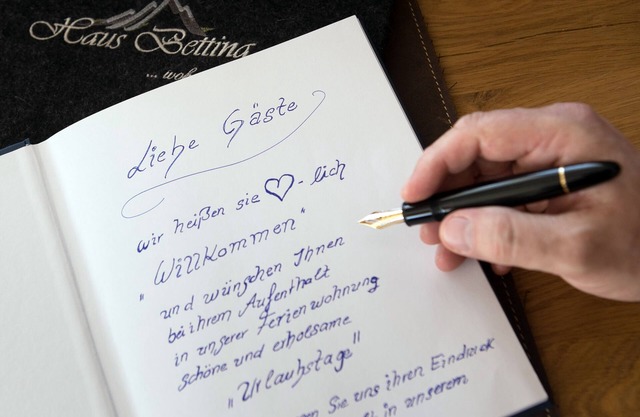 Haus Beiting
...
Liebe Gäste
wir heißen sie ♡-lich
"Willkommen"
und wünschen Ihnen
bei ihrem Aufenthalt
in unserer Ferienwohnung
schöne und erholsame
"Urlaubstage"
Sie uns ihren Eindruck
in unserem